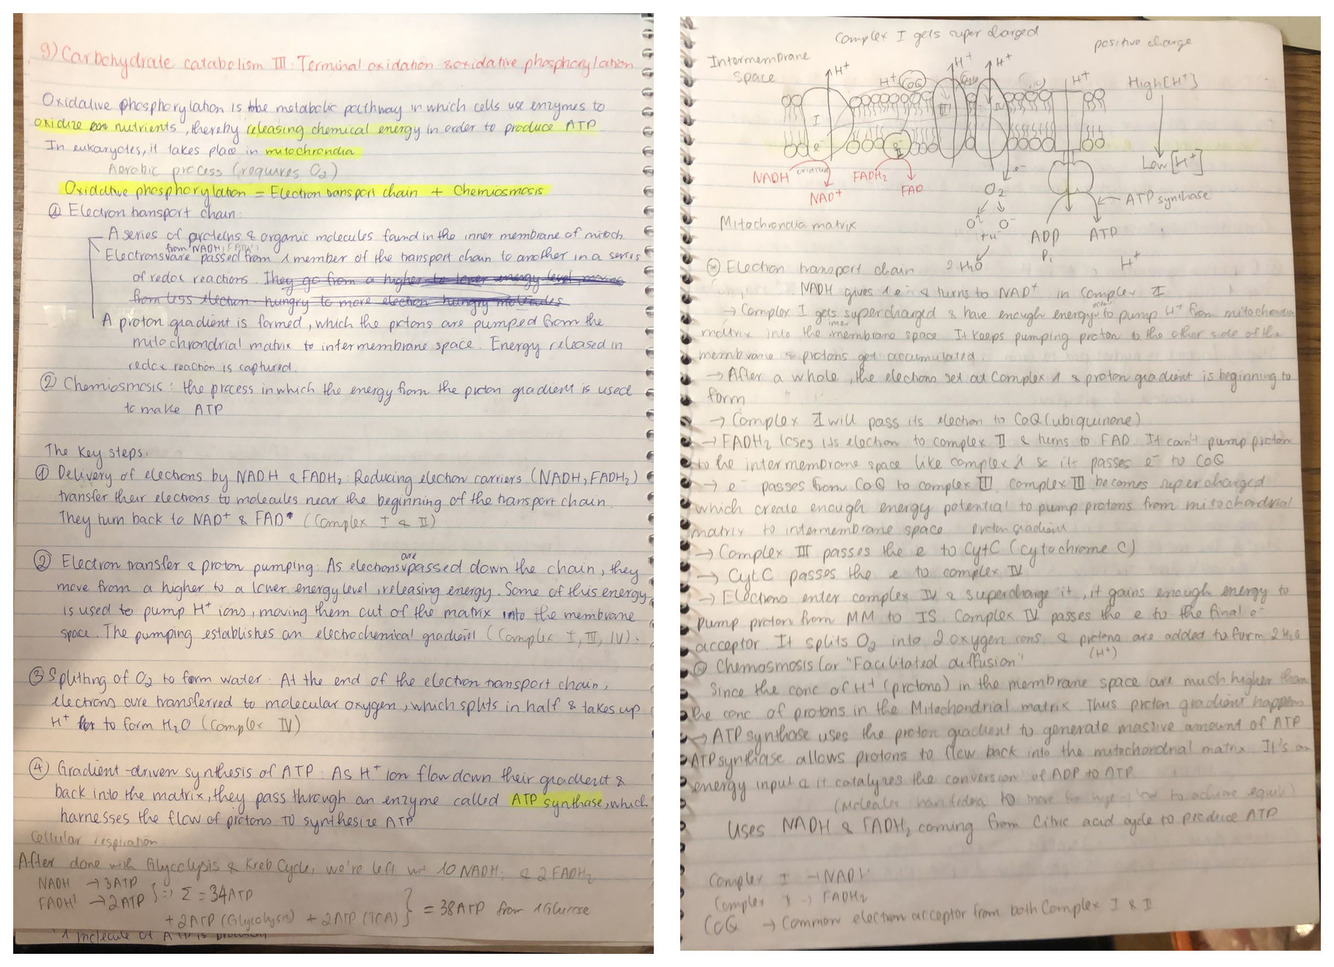 9) Carbohydrate catabolism III: Terminal oxidation & oxidative phosphorylation
Oxidative phosphorylation is the metabolic pathway in which cells use enzymes to
oxidize nutrients, thereby releasing chemical energy in order to produce ATP
In eukaryotes, it takes place in mitochrondia
Aerobic process (requires O2)
Oxidative phosphorylation = Electron transport chain + Chemiosmosis
① Electron transport chain:
A series of proteins & organic molecules found in the inner membrane of mitoch.
from NADH, FADH2
Electrons are passed from 1 member of the transport chain to another in a series
of redox reactions. They go from a higher to lower energy level moves
from less election-hungry to more election hungry molecules
A proton gradient is formed, which the prtons are pumped from the
mitochrondrial matrix to intermembrane space. Energy released in
redox reaction is captured.
② Chemiosmosis: the process in which the energy from the proton gradient is used
to make ATP
The Key steps:
① Delivery of electrons by NADH & FADH2: Reducing electron carriers (NADH, FADH2)
transfer their electrons to molecules near the beginning of the transport chain.
They turn back to NAD+ & FAD+ (Complex I & II)
② Electron transfer & proton pumping: As electrons are passed down the chain, they
move from a higher to a lower energy level, releasing energy. Some of this energy
is used to pump H+ ions, moving them out of the matrix into the membrane
space. The pumping establishes an electrochemical gradient (Complex I, III, IV).
③ Splitting of O2 to form water: At the end of the electron transport chain,
electrons are transferred to molecular oxygen, which splits in half & takes up
H+ to form H2O (Complex IV)
④ Gradient-driven synthesis of ATP: As H+ ion flow down their gradient &
back into the matrix, they pass through an enzyme called ATP synthase, which
harnesses the flow of protons to synthesize ATP
Cellular respiration
After done with Glycolysis & Kreb Cycle, we're left w/ 10 NADH & 2 FADH2
NADH → 3ATP
FADH → 2ATP } => Σ = 34ATP
+ 2ATP (Glycolysis) + 2ATP (TCA) } = 38ATP from 1 Glucose
1 molecule of ATP is
Complex I gets supercharged
positive charge
Intermembrane
Space
H+
H+
CoQ
H+
H+
H+
High [H+]
I
II
III
IV
e-
e-
Low [H+]
NADH
NAD+
FADH2
FAD
O2
O-
O-
2 H2O
ATP synthase
ADP
Pi
ATP
H+
Mitochondia matrix
Election transport chain
NADH gives 1 e- & turns to NAD+ in complex I
→ Complex I gets supercharged & have enough energy to pump H+ from mitochondria
matrix into the inter membrane space. It keeps pumping proton to the other side of the
membrane & protons get accumulated.
→ After a whole, the elections set at Complex 1 & proton gradient is beginning to
form
→ Complex I will pass its election to CoQ (ubiquinone)
→ FADH2 loses its election to complex II & turns to FAD. It can't pump proton
to the intermembrane space like complex 1 so it passes e- to CoQ
→ e- passes from CoQ to complex III. Complex III becomes supercharged
which create enough energy potential to pump protons from mitochondrial
matrix to intermembrane space proton gradient
→ Complex III passes the e to CytC (cytochrome c)
→ Cyt C passes the e to complex IV
→ Elections enter complex IV & supercharge it, it gains enough energy to
pump proton from MM to IS. Complex IV passes the e to the final e-
acceptor. It splits O2 into 2 oxygen ions, & protons are added to form 2 H2O
(H+)
Chemosmosis (or "Facilitated diffusion"
Since the conc of H+ (protons) in the membrane space are much higher than
the conc of protons in the Mitochondrial matrix. Thus proton gradient happens
→ ATP synthase uses the proton gradient to generate massive amount of ATP
ATP synthase allows protons to flow back into the mitochondrial matrix. It's an
energy input & it catalyzes the conversion of ADP to ATP
to move to achieve
Uses NADH & FADH2 coming from Citric acid cycle to produce ATP
Complex I → NADH
Complex II → FADH2
CoQ → Common electron acceptor from both Complex I & II